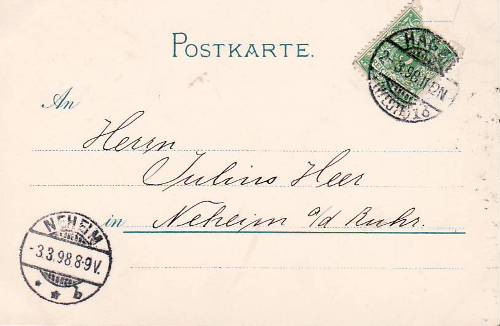 POSTKARTE.
An
Herrn
Julius Heer
in Neheim a/d Ruhr.
NEHEIM
-3.3.98 8-9V.
* * b